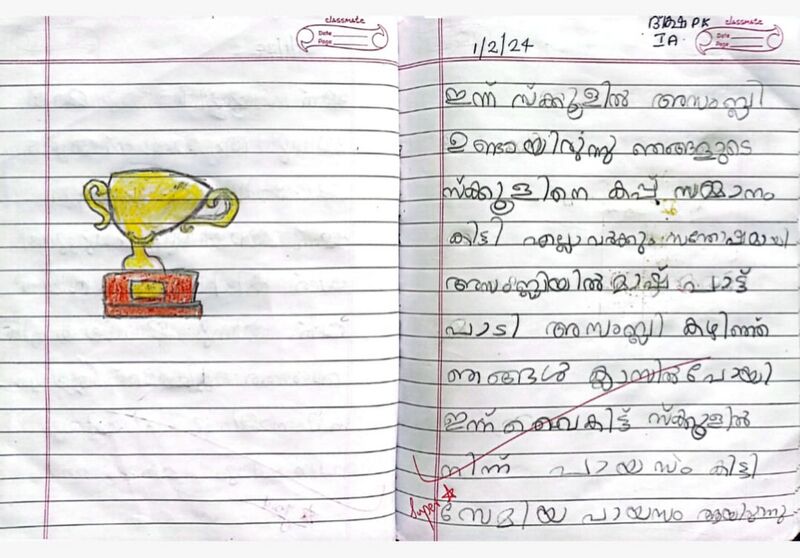 classmate
Date
Page
classmate
Date
Page
ദക്ഷ PK
I A
1/2/24
ഇന്ന് സ്ക്കൂളിൽ അസംബ്ലി
ഉണ്ടായിരുന്നു ഞങ്ങളുടെ
സ്ക്കൂളിനെ കപ്പ് സമ്മാനം
കിട്ടി എല്ലാവർക്കും സന്തോഷമായി
അസംബ്ലിയിൽ മാഷ് പാട്ട്
പാടി അസംബ്ലി കഴിഞ്ഞ്
ഞങ്ങൾ ക്ലാസിൽ പോയി
ഇന്ന് വൈകിട്ട് സ്ക്കൂളിൽ
നിന്ന് പായസം കിട്ടി
Super
പായസം ആയിരുന്നു